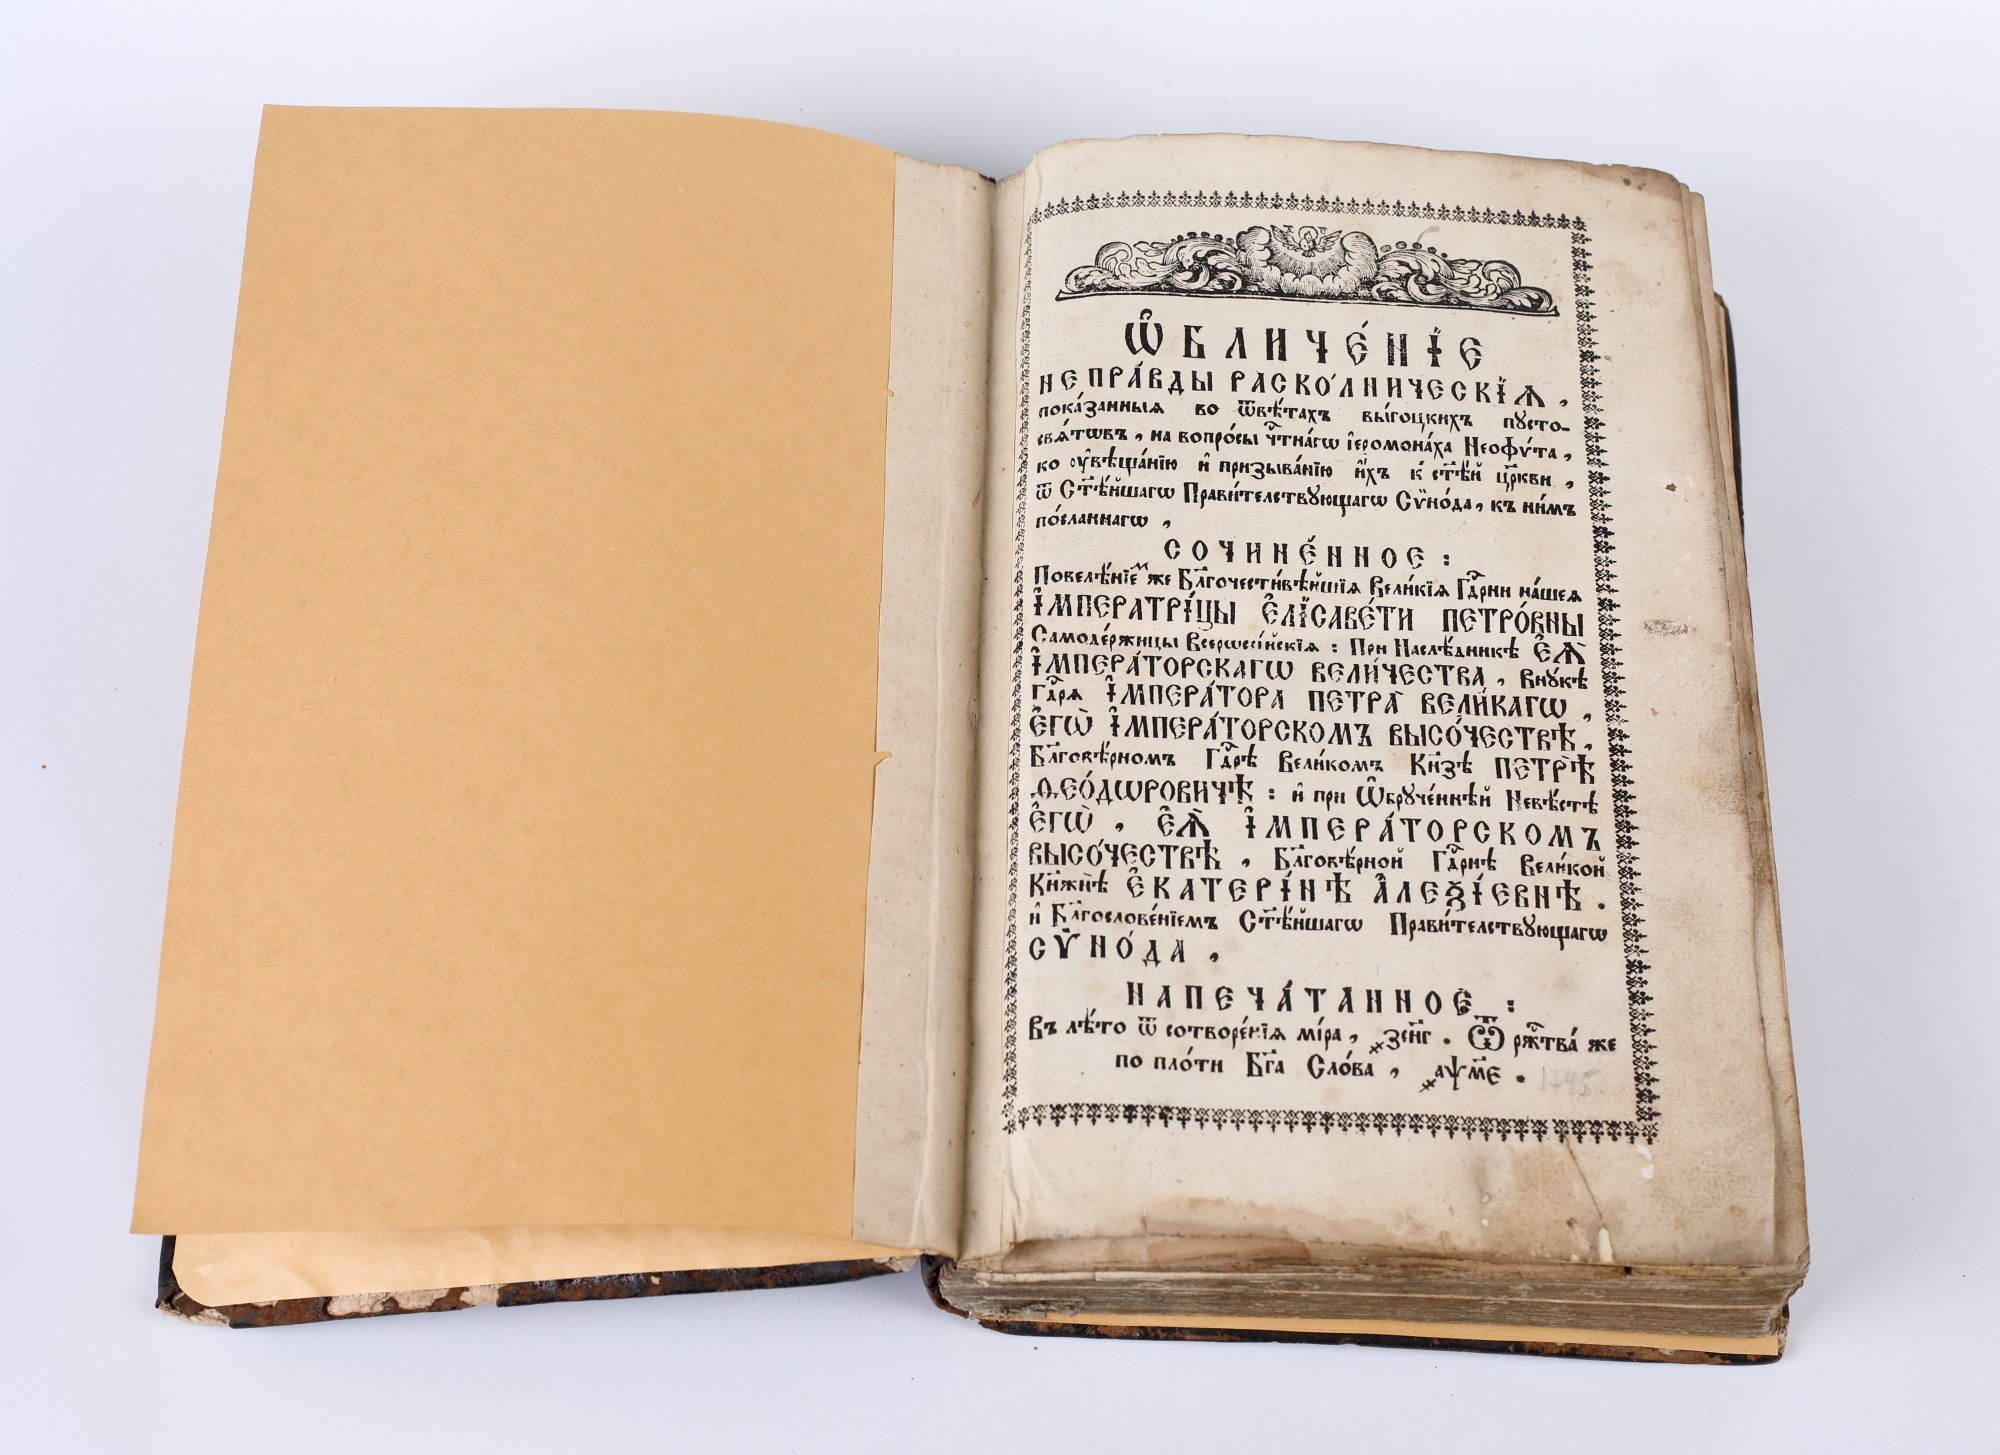 Ѡ҆БЛИЧЕ́НЇЕ
НЕПРА́ВДЫ РАСКО́ЛНИЧЕСКЇѦ,
пока́занныѧ во ѿвѣ́тахъ вы́гоцкихъ пусто-
свѧ́тѡвъ, на вопро́сы чⷭ҇тна́гѡ і҆еромона́ха Неофѵ́та,
ко ᲂу҆вѣща́нїю и҆ призыва́нїю и҆́хъ к̾ ст҃ѣ́й цр҃кви,
ѿ Ст҃ѣ́йшагѡ Прави́телствꙋющагѡ Сѵно́да, къ ни́мъ
по́сланнагѡ,
СОЧИНЕ́ННОЕ:
Повелѣ́нїемъ же Бл҃гочести́вѣйшїѧ Вели́кїѧ Гдⷭ҇рни на́шеѧ
І҆МПЕРАТРІ́ЦЫ Е҆ЛІСАВЕ́ТИ ПЕТРО́ВНЫ
Самоде́ржицы Всерѡссі́йскїѧ: При Наслѣ́дникѣ Е҆Ѧ̀
І҆МПЕРА́ТОРСКАГѠ ВЕЛИ́ЧЕСТВА, Внꙋ́кѣ
Гдⷭ҇рѧ І҆МПЕРА́ТОРА ПЕТРА̀ ВЕЛИ́КАГѠ,
Е҆ГѠ̀ І҆МПЕРА́ТОРСКОМЪ ВЫСО́ЧЕСТВѢ,
Бл҃говѣ́рномъ Гдⷭ҇рѣ Вели́комъ Кн҃зѣ ПЕТРѢ̀
Ѳ҆ЕО́ДѠРОВИЧѢ: и҆ при Ѡ҆брꙋче́ннѣй Невѣ́стѣ
Е҆ГѠ̀, Е҆Ѧ̀ І҆МПЕРА́ТОРСКОМЪ
ВЫСО́ЧЕСТВѢ, Бл҃говѣ́рной Гдⷭ҇рнѣ Вели́кой
Кн҃жнѣ̀ Е҆КАТЕРІ́НѢ А҆ЛЕѮІ́ЕВНѢ.
и҆ Бл҃гослове́нїемъ Ст҃ѣ́йшагѡ Прави́телствꙋющагѡ
СѴНО́ДА,
НАПЕЧА́ТАННОЕ:
Въ лѣ́то ѿ сотворе́нїѧ мі́ра, ҂зсн҃г. Ѿ ржⷭ҇тва́ же
по пло́ти Бг҃а Сло́ва, ҂аѱм҃е. 1745.